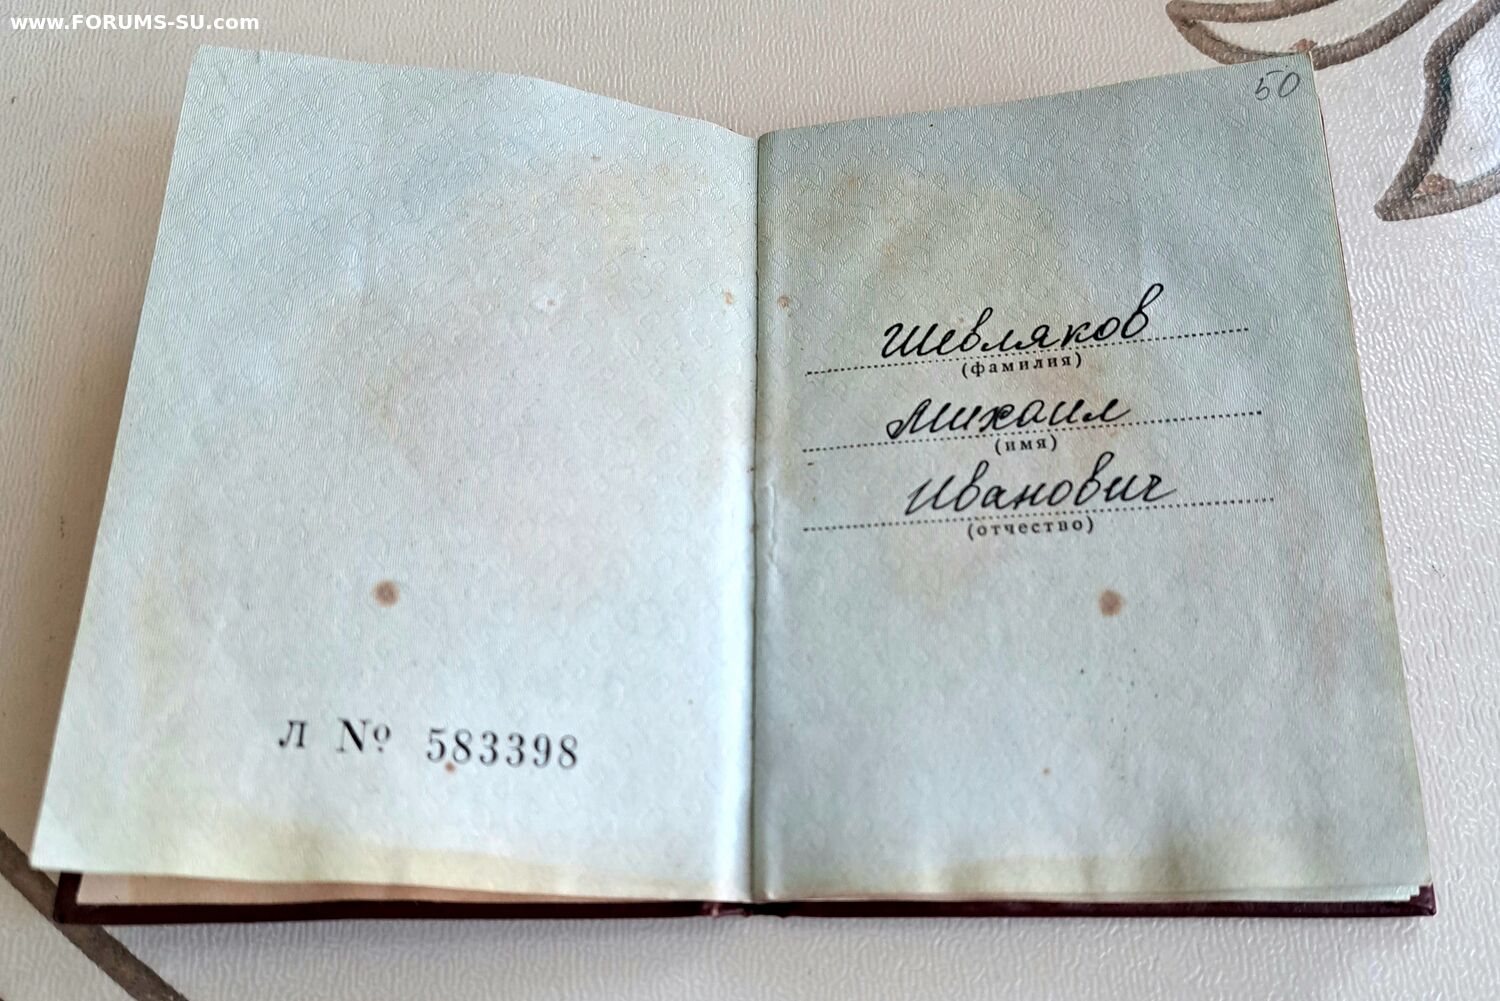 www.FORUMS-SU.com
50
Шевляков
(фамилия)
Михаил
(имя)
Иванович
(отчество)
Л № 583398